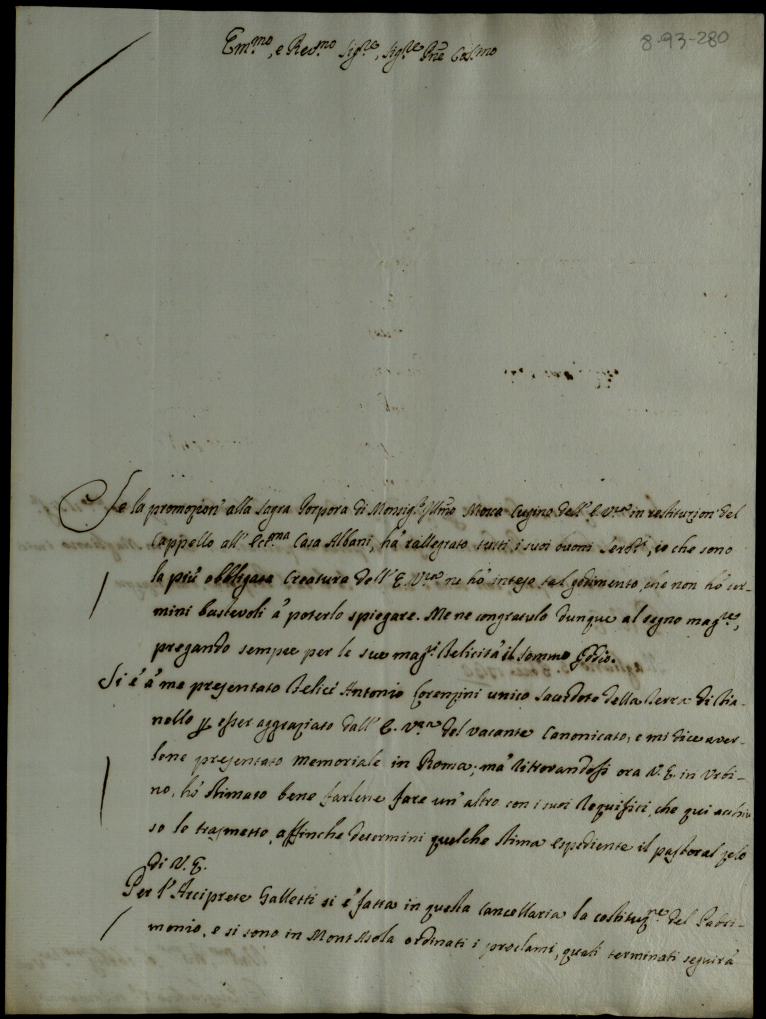 8-93-280
Em.mo, e Rev.mo Sig.re, Sig.re Pne Col.mo
Se la promozion' alla Sagra Porpora di Monsig.r Ill.mo Mosca Cugino dell' E. V.ra in restituzion' del
Cappello all' Ecc.ma Casa Albani, hà rallegrato tutti i suoi buoni Serv.ri, io che sono
la più obbligata Creatura dell' E. V.ra ne hò inteso tal godimento, che non hò ter-
mini bastevoli à poterlo spiegare. Me ne congratulo dunque al segno mag.re,
pregando sempre per le sue mag.ri felicità il sommo Iddio.
Si è à me presentato Felice Antonio Lorenzini unico Sacerdote della Terra di Cia-
nello p esser aggraziato dall' E. V.ra del vacante Canonicato, e mi dice aver-
lene presentato memoriale in Roma; mà ritrovandosi ora V. E. in Urbi-
no, hò stimato bene farlene fare un' altro con i suoi requisiti, che qui acchiu
so le trasmetto, affinche determini quelche stima espediente il pastoral zelo
di V. E.
Per l' Arciprete Galletti si è fatta in questa Cancellaria la costituz.ne del Patri-
monio, e si sono in Mont'Asola ordinati i proclami, quali terminati seguirà